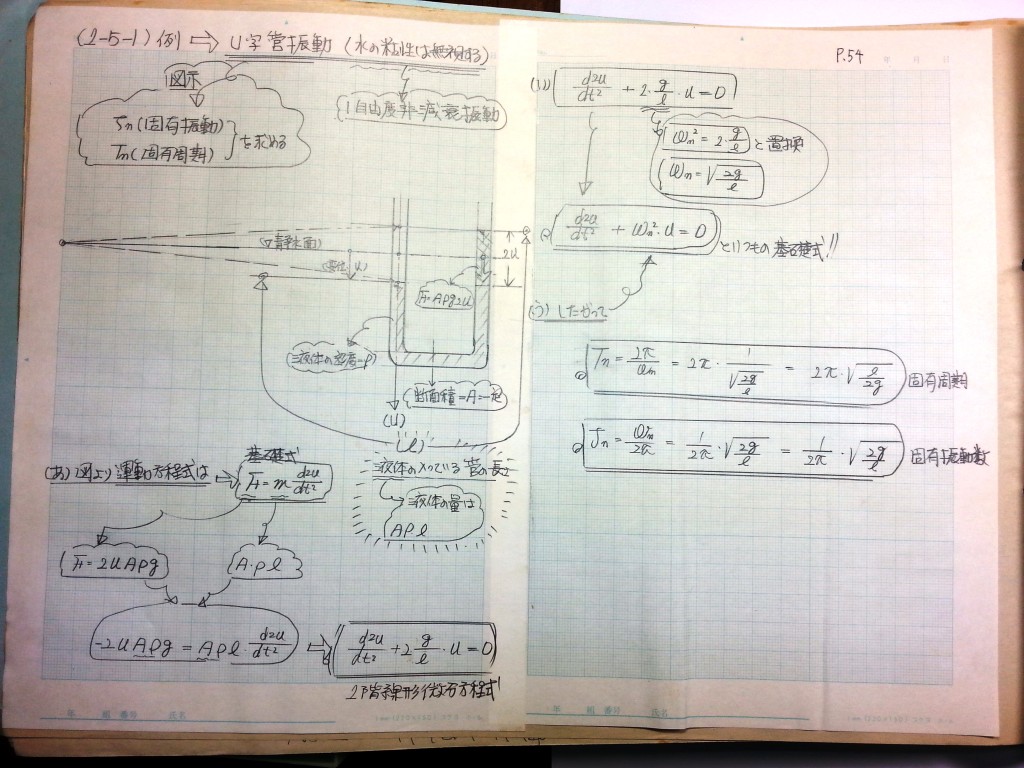 (2-5-1) 例 ⇨ U字管振動 (水の粘性は無視する)
図示
fn (固有振動)
Tn (固有周期)
を求める
1自由度非減衰振動
(▽静水面)
(変位 u)
2u
F=Aρg2u
液体の密度=ρ
断面積=A=一定
(u)
(l)
液体の入っている管の長さ
液体の量は
Aρl
(あ) 図より運動方程式は ⇨
基礎式
F = m d2u/dt²
F=2uAρg
A・ρl
-2uAρg = Aρl・d2u/dt² ⇨ d2u/dt² + 2 g/l・u = 0
2階線形微分方程式
P.54
年 月 日
(い) d2u/dt² + 2・g/l・u = 0
ωn² = 2・g/l と置換
ωn = √2g/l
d2u/dt² + ωn²・u = 0 といつもの基礎式!!
(う) したがって
Tn = 2π/ωn = 2π・1/√2g/l = 2π・√l/2g 固有周期
fn = ωn/2π = 1/2π・√2g/l = 1/2π・√2g/l 固有振動数
年 組 番号 氏名
年 組 番号 氏名